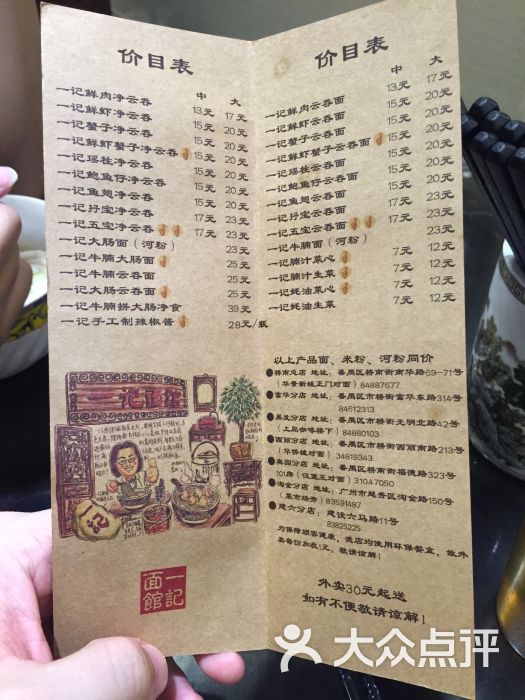 价目表
中 大
一记鲜肉净云吞 13元 17元
一记鲜虾净云吞 15元 20元
一记蟹子净云吞 15元 20元
一记鲜虾蟹子净云吞 15元 20元
一记瑶柱净云吞 15元 20元
一记鲍鱼仔净云吞 15元 20元
一记鱼翅净云吞 15元 20元
一记孖宝净云吞 17元 23元
一记五宝净云吞 17元 23元
一记大肠面（河粉） 23元
一记牛腩大肠面 25元
一记牛腩云吞面 25元
一记大肠云吞面 25元
一记牛腩拼大肠净食 39元
一记手工制辣椒酱 28元/瓶
一记面馆
价目表
中 大
一记鲜肉云吞面 13元 17元
一记鲜虾云吞面 15元 20元
一记蟹子云吞面 15元 20元
一记鲜虾蟹子云吞面 15元 20元
一记瑶柱云吞面 15元 20元
一记鲍鱼仔云吞面 15元 20元
一记鱼翅云吞面 15元 20元
一记孖宝云吞面 17元 23元
一记五宝云吞面 17元 23元
一记牛腩面（河粉） 23元
一记腩汁菜心 7元 12元
一记腩汁生菜 7元 12元
一记蚝油菜心 7元 12元
一记蚝油生菜 7元 12元
以上产品面、米粉、河粉同价
●桥南总店 地址：番禺区桥南街南华路69-71号
（华景新城正门对面）84887677
●富华分店 地址：番禺区市桥街富华东路314号
84612313
●易发分店 地址：番禺区市桥街光明北路42号
（上岛咖啡楼下）84880103
●西丽分店 地址：番禺区市桥街西丽南路213号
（华侨城对面）34819343
●奥园分店 地址：番禺区桥南街福德路323号
101房（汉堡王对面）31047050
●淘金分店 地址：广州市越秀区淘金路150号
（菜市场旁）83591487
●建六分店：建设六马路11号
83825225
为保障顾客健康，我店均使用环保餐盒，故外
卖每份加收1元。敬请谅解！
外卖30元起送
如有不便敬请谅解！
一記
面館
大众点评